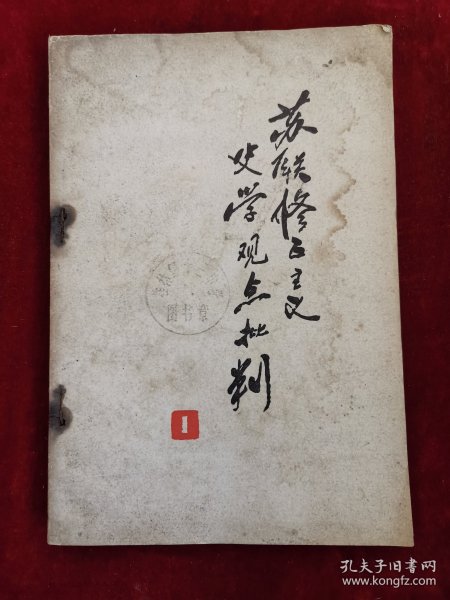 苏联修正主义
史学观点批判
1
图书章
孔夫子旧书网
www.kongfz.com